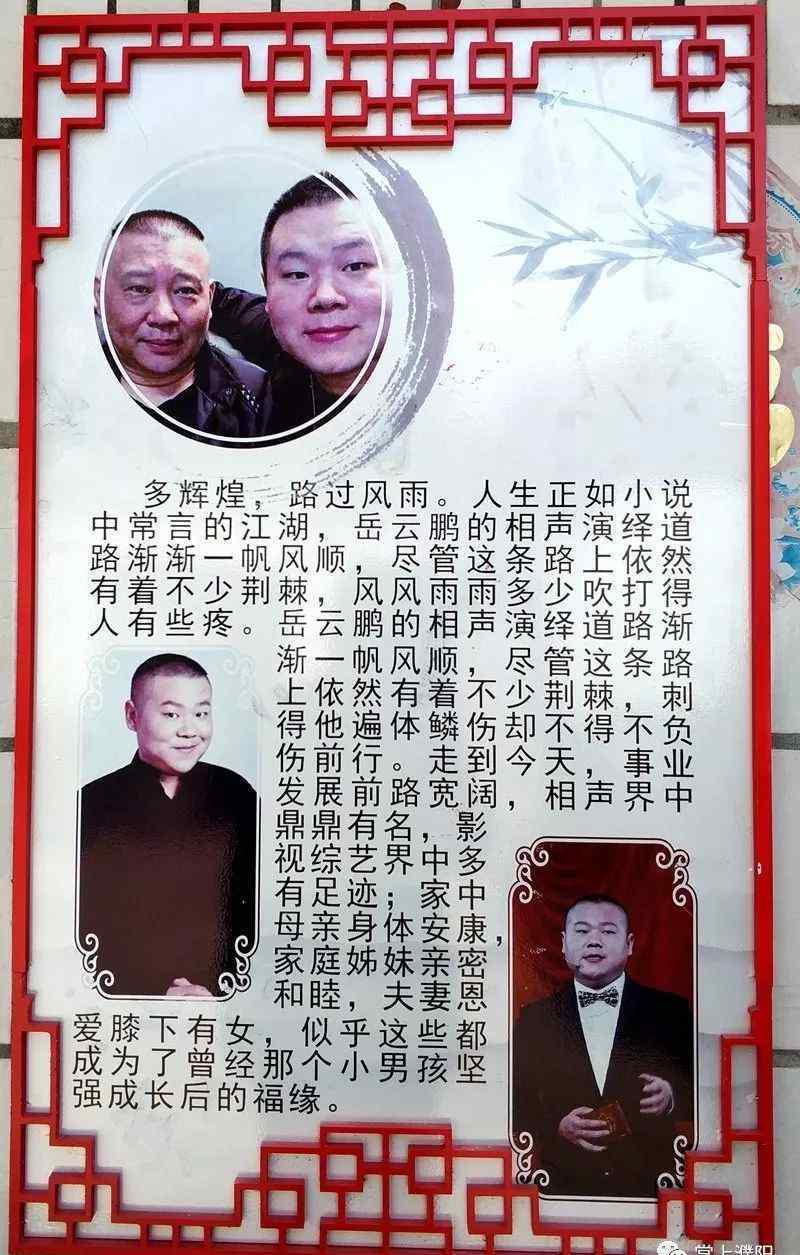 多辉煌，路过风雨。人生正如小说
中常言的江湖，岳云鹏的相声演绎道
路渐渐一帆风顺，尽管这条路上依然
有着不少荆棘，风风雨雨多少吹打得
人有些疼。岳云鹏的相声演绎道路渐
渐一帆风顺，尽管这条路
上依然有着不少荆棘，刺
得他遍体鳞伤却不得不负
伤前行。走到今天，事业
发展前路宽阔，相声界中
鼎鼎有名，影
视综艺界中多
有足迹；家中
母亲身体安康，
家庭姊妹亲密
和睦，夫妻恩
爱膝下有女，似乎这些都
成为了曾经那个小男孩坚
强成长后的福缘。
掌上濮阳